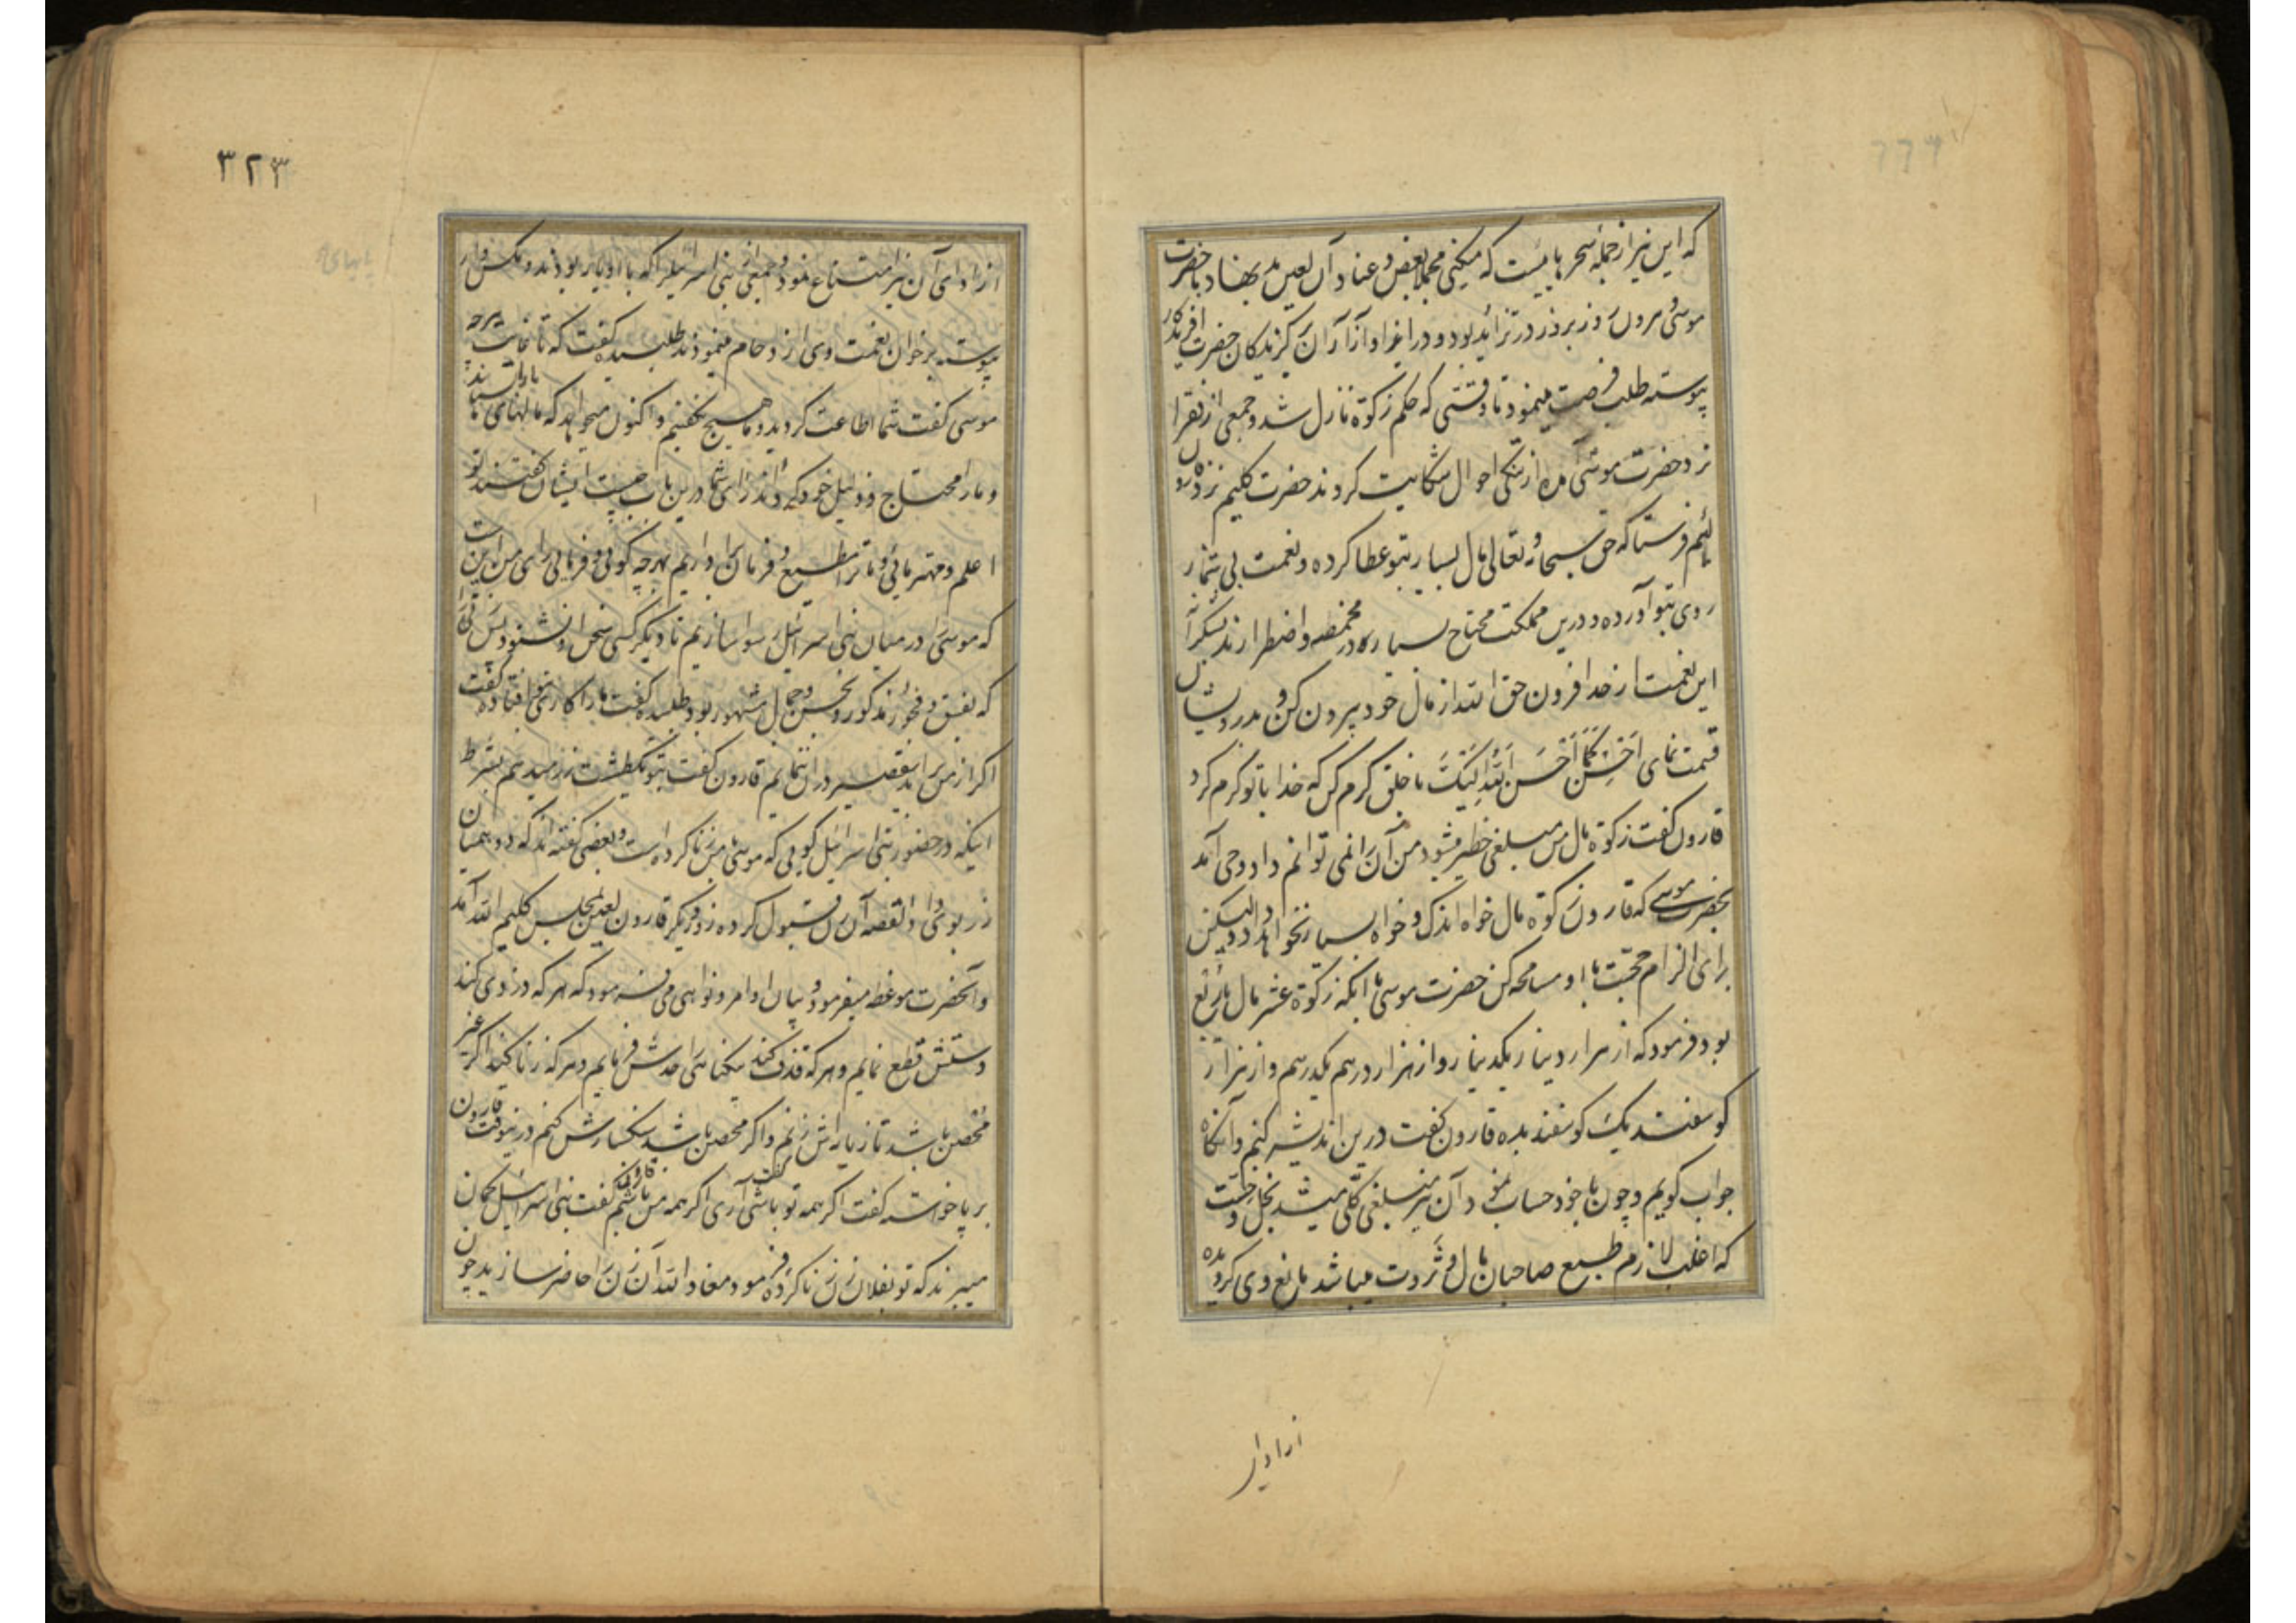 که این نیز از جمله سحرهاییست که میکنی مجملا بغض و عناد آن لعین بدبهنا د با حضرت
موسی مرون روز بروز در تزاید بود و در ایذا و آزار آن کزیدکان حضرت آفریدکار
پیوسته طلب فرصت مینمود تا وقتی که حکم زکوة نازل شد و جمعی از فقرا
نزد حضرت موسی آمده از تنکی احوال شکایت کردند حضرت کلیم نزد
لئیم فرستاد که حق سبحانه و تعالی مال بسیار بتو عطا کرده و نعمت بی شمار
روی بتو آورده و درین مملکت محتاج بسیار که در مخمصه و اضطرارند بشکرانه
این نعمت از حد افزون حق الله از مال خود بیرون کن و بدرویشان
قسمت نمای اَحْسِنْ کَمَا اَحْسَنَ اللهُ اِلَیْکَ با خلق کرم کن که خدا با تو کرم کرد
قارون کفت زکوة مال من مبلغی خطیر میشود من آن را نمی توانم داد وحی آمد
بحضرت موسی که قارون زکوة مال خواه اندک و خواه بسیار نخواهد داد لیکن
برای الزام حجت با او مسامحه کن حضرت موسی با آنکه زکوة عشر مال یا ربع
بود فرمود که از هزار دینار یکدینار و از هزار درهم یکدرهم و از هزار
کوسفند یک کوسفند بده قارون کفت درین اندیشه کنم و آنکاه
جواب کویم و چون با خود حساب نمود آن نیز مبلغی کلی میشد بخل و خست
که اغلب لازم طبع صاحبان مال و ثروت میباشد مانع وی کردیده
از ادای
۳۲۳
از ادای آن نیز امتناع نمود و جمعی از بنی اسرائیل را که با او یار بودند و مکس وار
پیوسته بر خوان نعمت وی ازدحام مینمودند طلبیده کفت که تا غایت هرچه
موسی کفت شما اطاعت کردید و ما هیچ نکفتیم و اکنون میخواهد که مالهای ما بستاند
و ما را محتاج و ذلیل خود کرداند رای شما درین باب چیست ایشان کفتند تو
اعلم و مهتر مائی و ما ترا مطیع و فرمان برداریم بهرچه کوئی و فرمائی رای من اینست
که موسی را در میان بنی اسرائیل رسوا سازیم تا دیکر کسی سخن او نشنود پس زنی را
که بفسق و فجور مذکور و بحسن و جمال مشهور بود طلبیده کفت ما را کاری بتو افتاده کفت
اکر از من برآید تقصیر در ان ننمایم قارون کفت بتو یکطشت زر میدهم بشرط
اینکه در حضور بنی اسرائیل کویی که موسی با من زنا کرده است و بعضی کفته اند که دو همیان
زر بوی داد القصه آن زن قبول کرده روز دیکر قارون لعین بمجلس کلیم الله آمد
و آنحضرت موعظه میفرمود و بیان اوامر و نواهی می فرمود که هرکه دزدی کند
دستش قطع نمایم و هرکه قذف کند بیکناهی را حدش فرمایم و هرکه زنا کند اکر غیر
محصن باشد تازیانه اش زنم و اکر محصن باشد سنکسارش کنم درینوقت قارون
بر پا خواسته کفت اکر همه تو باشی کفت آری اکر همه من باشم قارون کفت بنی اسرائیل کمان
میبرند که تو بفلان زن زنا کرده فرمود معاذ الله آن زن را حاضر سازید چون